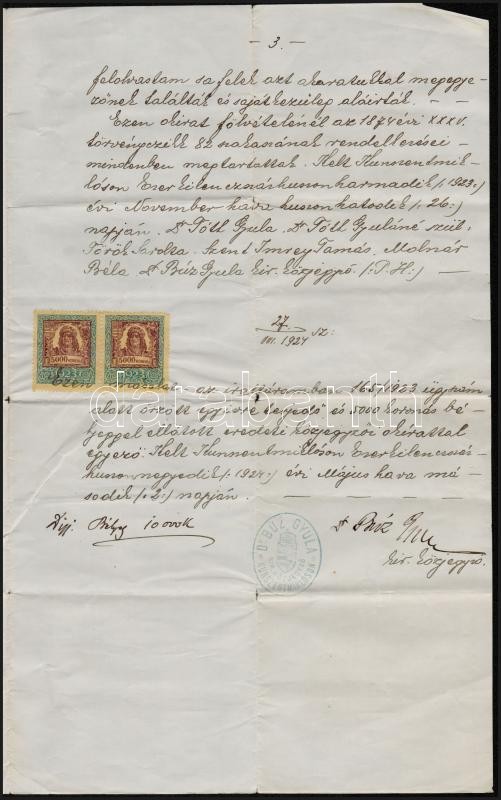 - 3. -
felolvastam s a felek azt akaratukkal megegye-
zőnek találták és sajátkezüleg aláirták.
Ezen okirat fölvételénél az 1874 évi XXXV.
törvényczikk 82 szakaszának rendelkezései
mindenben megtartattak. Kelt Kunszentmik-
lóson Ezerkilenczszázhuszonharmadik /:1923:/
évi November hava huszonhatodik /:26:/
napján. Dr Tóth Gyula. Dr Tóth Gyuláné szül:
Török Sarolta. Szent Imrey Tamás. Molnár
Béla. Dr Búz Gyula kir. közjegyző. /:P.H:/ -
27.
III. 1924 sz:
5000 KORONA 5000 KORONA
1923 1923
Ezen másolat az irattáromban 165/1923 ügyszám
alatt őrzött egy ívre terjedő és 5000 koronás bé-
lyeggel ellátott eredeti közjegyzői okirattal
egyező. Kelt Kunszentmiklóson Ezerkilenczszáz-
huszonnegyedik /:1924:/ évi Május hava má-
sodik /:2:/ napján.
Díj. Bélyeg 10000 K
Dr Búz Gyula
kir. közjegyző.
Dr BÚZ GYULA
KUNSZENTMIKLÓSON
darabanth